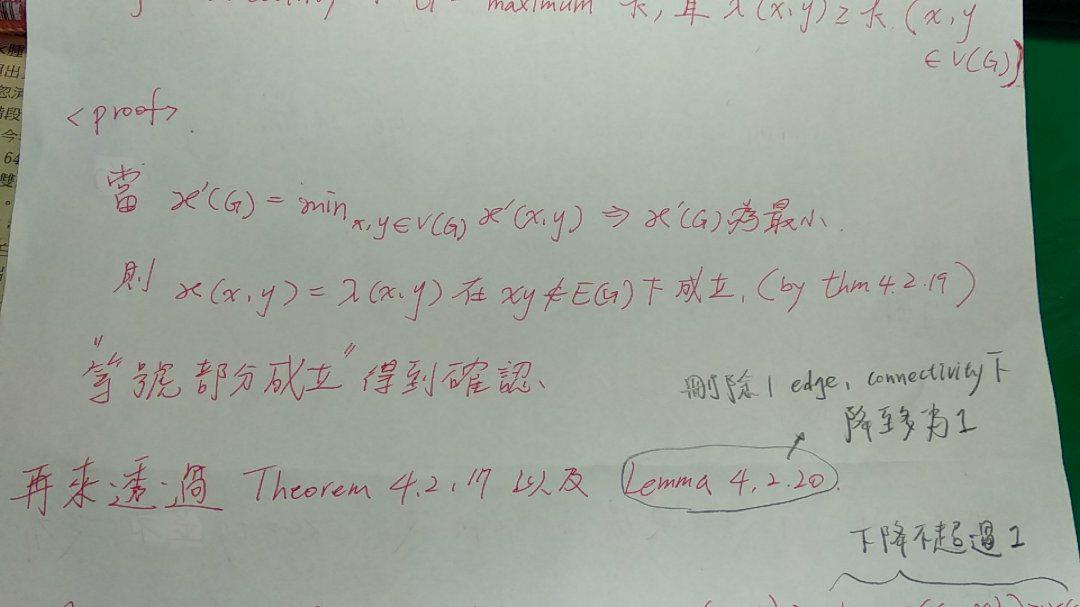 maximum k, 且 λ(x,y) ≥ k. (x,y
∈ V(G))
<proof>
當 ϰ'(G) = min x,y∈V(G) ϰ'(x,y) ⇒ ϰ'(G)為最小.
則 ϰ(x,y) = λ(x,y) 在 xy∉E(G)下成立, (by thm 4.2.19)
"等號部分成立" 得到確認、
刪除1 edge, connectivity下
降至多為1
再來透過 Theorem 4.2.17 以及 Lemma 4.2.20.
下降不超過1